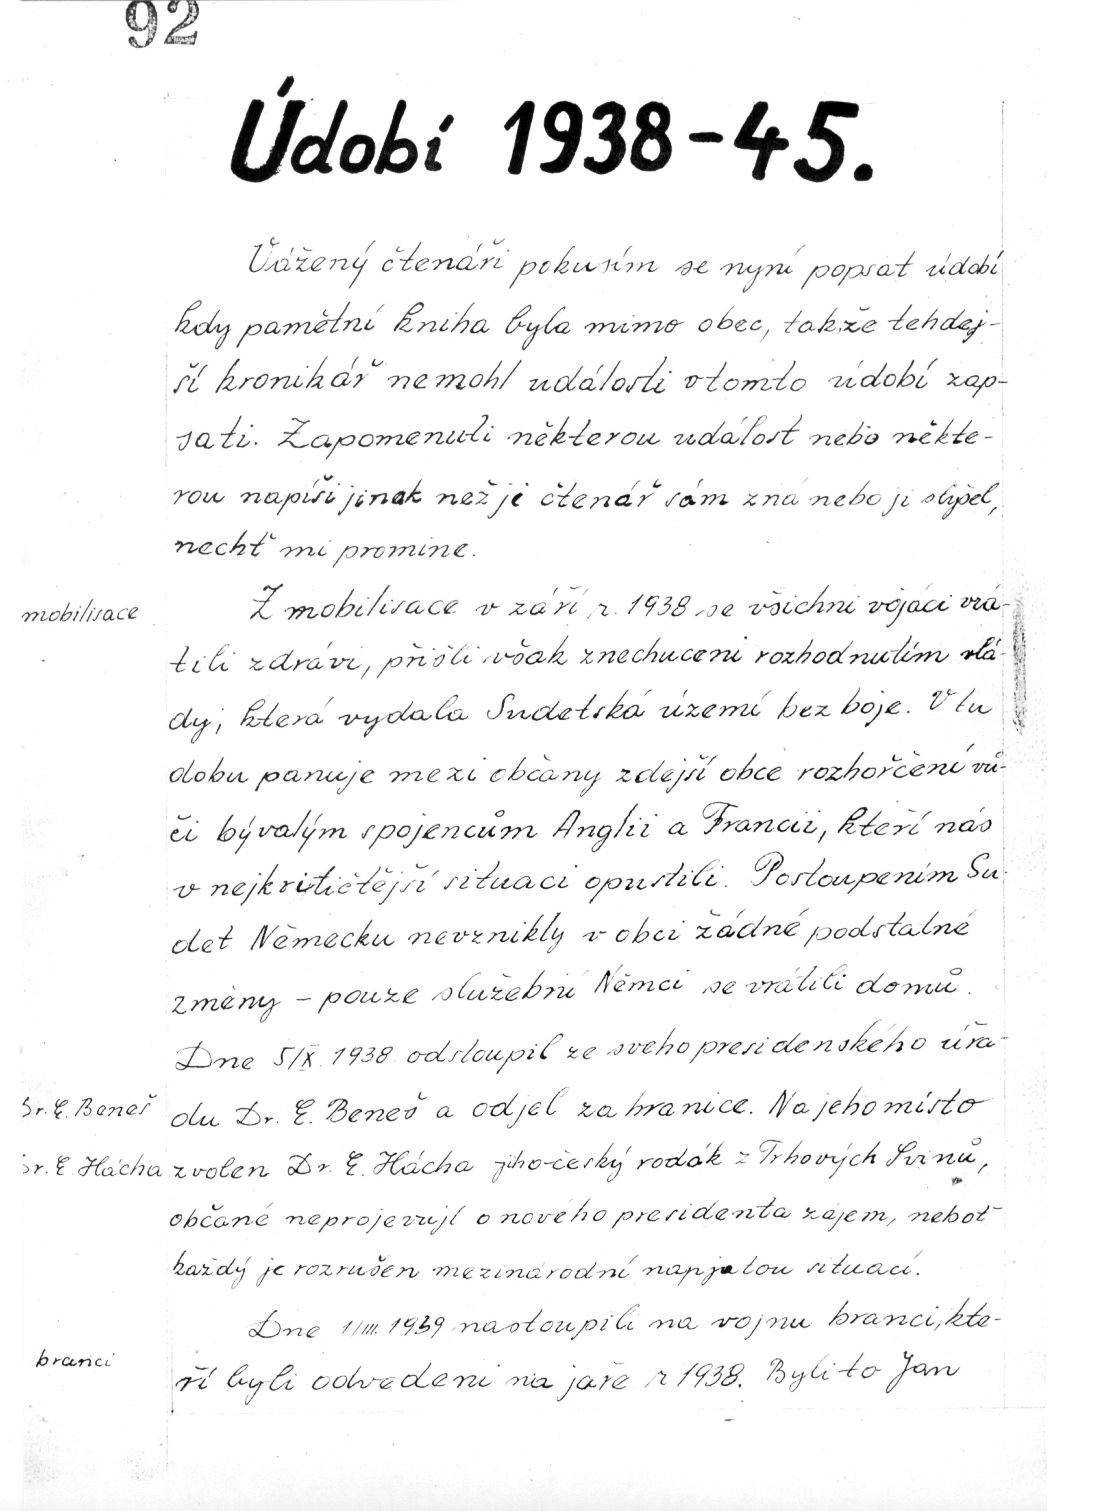 92
Údobí 1938-45.
Vážený čtenáři pokusím se nyní popsat údobí
kdy pamětní kniha byla mimo obec, takže tehdej-
ší kronikář nemohl události v tomto údobí zap-
sati. Zapomenuli některou událost nebo někte-
rou napíši jinak než ji čtenář sám zná nebo ji slyšel,
nechť mi promine.
mobilisace
Z mobilisace v září r. 1938 se všichni vojáci vrá-
tili zdrávi, přišli však znechuceni rozhodnutím vlá-
dy, která vydala Sudetská území bez boje. V tu
dobu panuje mezi občany zdejší obce rozhořčení vů-
či bývalým spojencům Anglii a Francii, kteří nás
v nejkritičtější situaci opustili. Postoupením Su-
det Německu nevznikly v obci žádné podstatné
změny - pouze služební Němci se vrátili domů.
Dne 5/X. 1938 odstoupil ze svého presidenského úřa-
Dr. E. Beneš
du Dr. E. Beneš a odjel za hranice. Na jeho místo
Dr. E. Hácha
zvolen Dr. E. Hácha jiho-český rodák z Trhových Svinů,
občané neprojevují o nového presidenta zájem, neboť
každý je rozrušen mezinárodní napjatou situací.
Dne 1/III. 1939 nastoupili na vojnu branci, kte-
branci
ří byli odvedeni na jaře r 1938. Byli to Jan